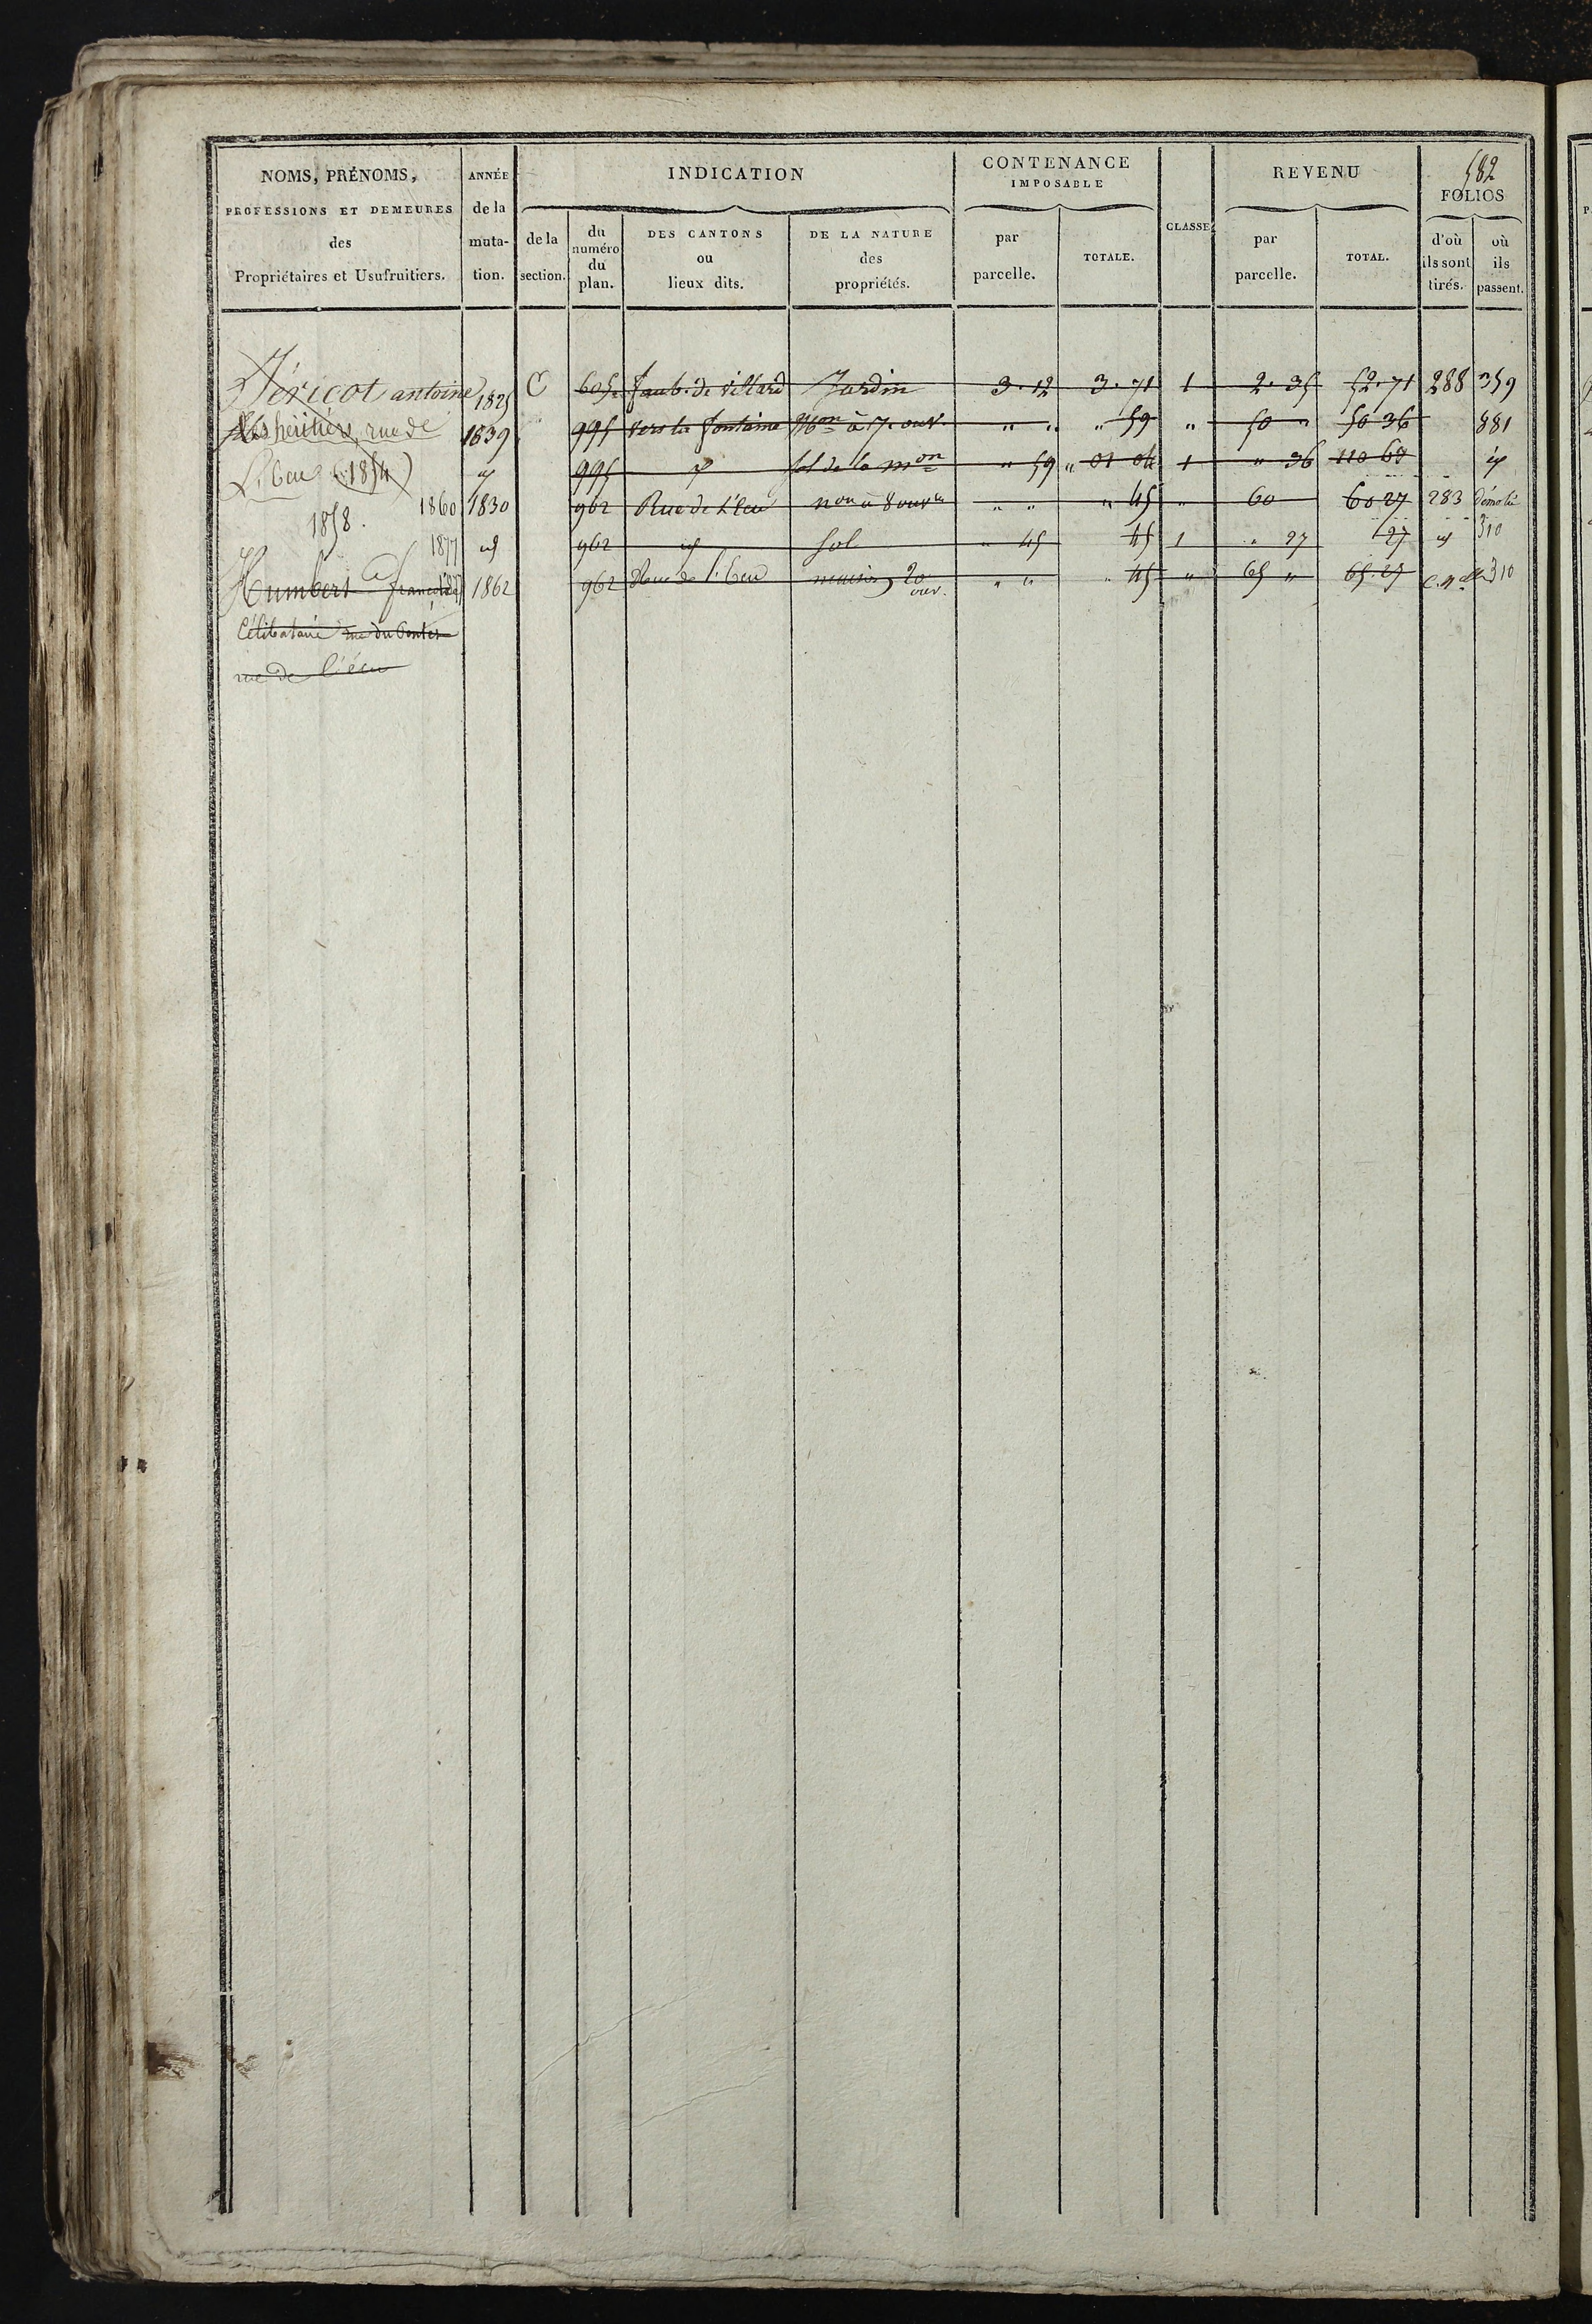 582
NOMS, PRÉNOMS, PROFESSIONS ET DEMEURES des Propriétaires et Usufruitiers.
ANNÉE de la muta-tion.
INDICATION
de la section.
du numéro du plan.
DES CANTONS ou lieux dits.
DE LA NATURE des propriétés.
CONTENANCE IMPOSABLE
par parcelle.
TOTALE.
CLASSE
REVENU
par parcelle.
TOTAL.
FOLIOS
d'où ils sont tirés.
où ils passent.
Jéricot antoine 1825 C 605 faub. de villard Jardin 3.12 3.71 1 2.35 52.71 288 359
Les héritiers, rue de 1839 995 vers la fontaine Mon à 7. ouv. " " " 59 " 50 " 50 36 881
L'Ecu (1854) id 995 id sol de la mon " 59 " 01 04 1 " 36 110 63 id
1858. 1860 1830 962 Rue de L'Ecu mon à 8 ouv. " " " 45 " 60 60 27 283 démoli
1877 id 962 id sol " 45 45 1 " 27 27 id 310
Humbert françois 1862 962 Rue de l'Ecu maison 20 ouv. " " " 45 " 65 " 65.27 310
Célibataire rue du
rue de l'écu